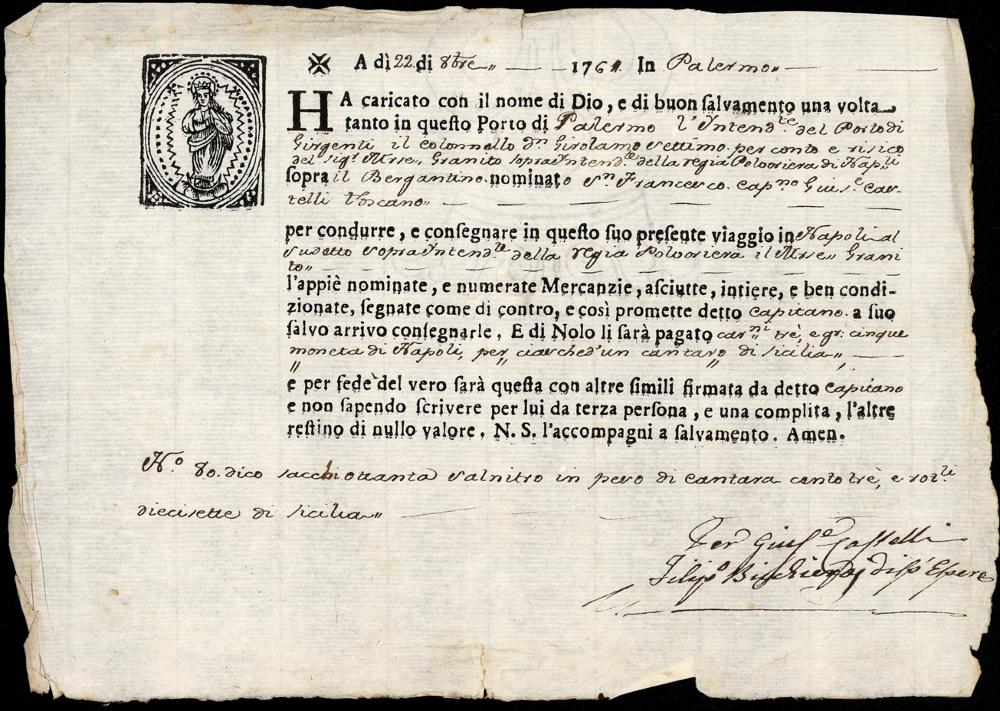 A dì 22 di 8bre 1761 In Palermo
HA caricato con il nome di Dio, e di buon salvamento una volta
tanto in questo Porto di Palermo l'Intend.te del Porto di
Girgenti il colonnello D.n Girolamo Settimo per conto e risico
del sig.r Granito sopraIntend.te della regia Polvoriera di Napli
sopra il Bergantino nominato S.n Francesco Cap.no Gius.e Cas-
telli Toscano
per condurre, e consegnare in questo suo presente viaggio in Napoli al
sudetto sopraIntend.te della regia Polvoriera il Grani
to
l'appiè nominate, e numerate Mercanzie, asciutte, intiere, e ben condi-
zionate, segnate come di contro, e così promette detto capitano a suo
salvo arrivo consegnarle. E di Nolo li sarà pagato car.ni trè, e gr. cinque
moneta di Napoli, per ciasched'un cantaro di sicilia
e per fede del vero sarà questa con altre simili firmata da detto capitano
e non sapendo scrivere per lui da terza persona, e una complita, l'altre
restino di nullo valore. N. S. l'accompagni a salvamento. Amen.
N.o 80. dico sacchi ottanta salnitro in peso di cantara cento trè, e rot.li
diecisette di sicilia
Gius.e Castelli